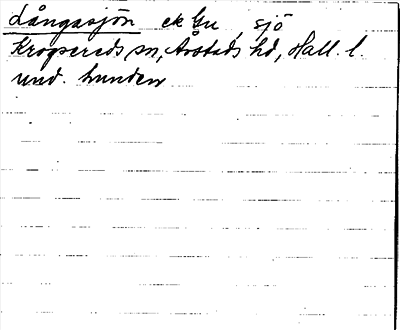 Långasjön ek Gu, sjö
Krogsereds sn, Årstads hd, Hall. l.
und. Lunden